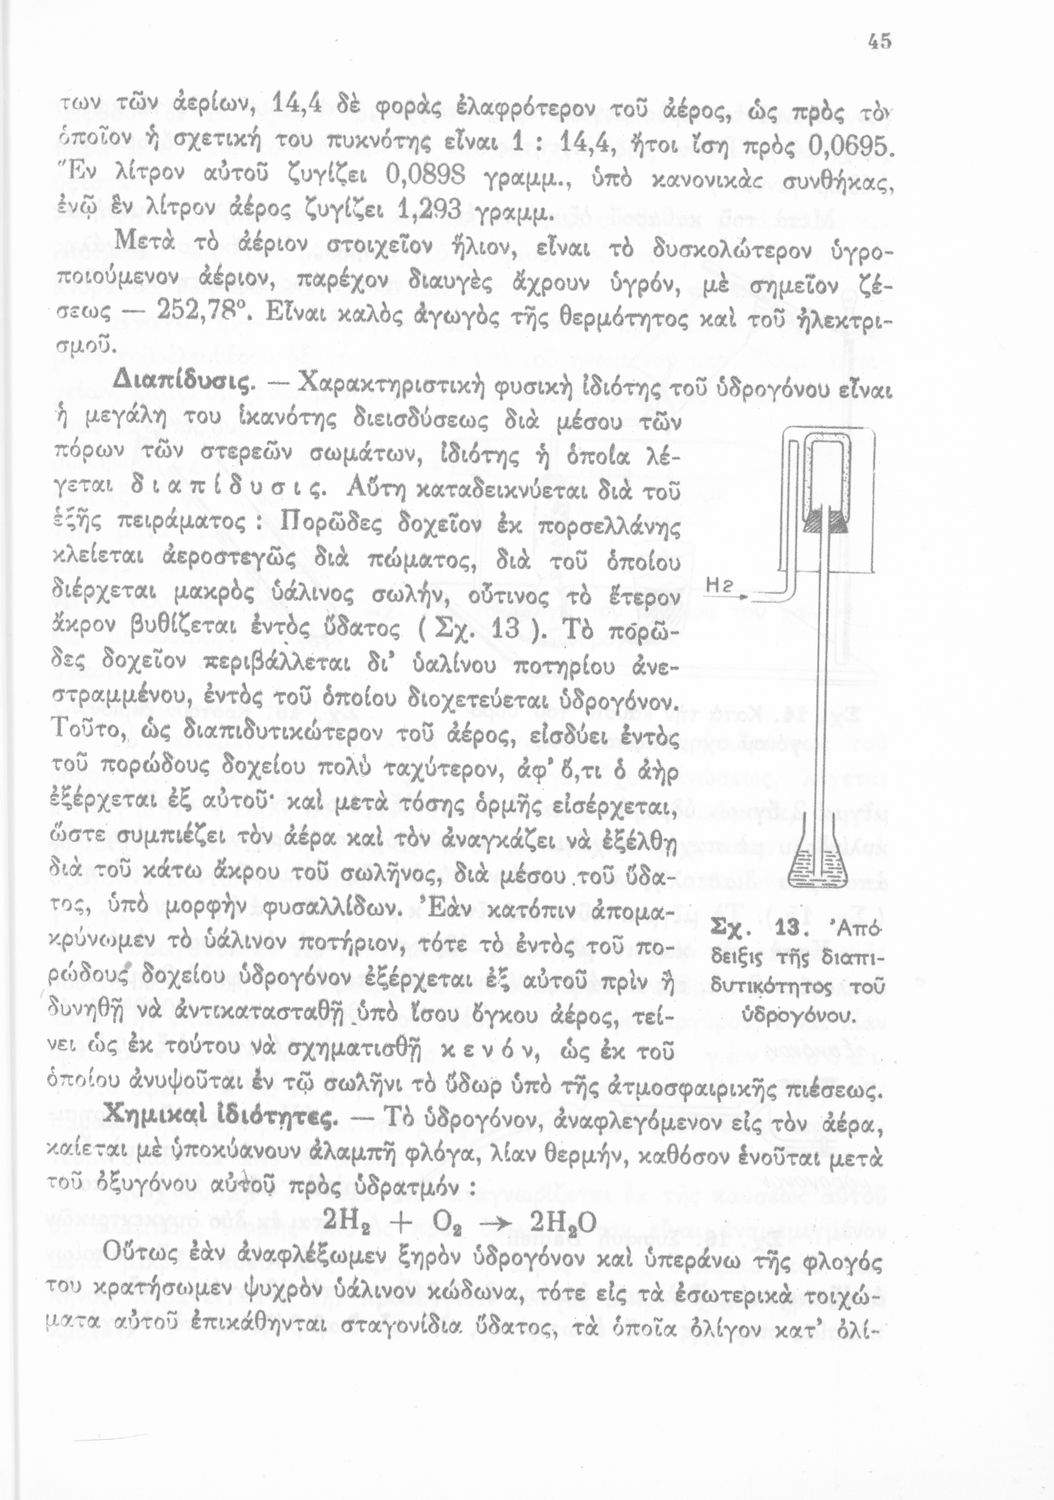 45
των τῶν ἀερίων, 14,4 δὲ φορὰς ἐλαφρότερον τοῦ ἀέρος, ὡς πρὸς τὸν
ὁποῖον ἡ σχετική του πυκνότης εἶναι 1 : 14,4, ἤτοι ἴση πρὸς 0,0695.
Ἓν λίτρον αὐτοῦ ζυγίζει 0,0898 γραμμ., ὑπὸ κανονικὰς συνθήκας,
ἐνῷ ἓν λίτρον ἀέρος ζυγίζει 1,293 γραμμ.
Μετὰ τὸ ἀέριον στοιχεῖον ἥλιον, εἶναι τὸ δυσκολώτερον ὑγρο-
ποιούμενον ἀέριον, παρέχον διαυγὲς ἄχρουν ὑγρόν, μὲ σημεῖον ζέ-
σεως — 252,78°. Εἶναι καλὸς ἀγωγὸς τῆς θερμότητος καὶ τοῦ ἠλεκτρι-
σμοῦ.
Διαπίδυσις. — Χαρακτηριστικὴ φυσικὴ ἰδιότης τοῦ ὑδρογόνου εἶναι
ἡ μεγάλη του ἱκανότης διεισδύσεως διὰ μέσου τῶν
πόρων τῶν στερεῶν σωμάτων, ἰδιότης ἡ ὁποία λέ-
γεται δ ι α π ί δ υ σ ι ς. Αὕτη καταδεικνύεται διὰ τοῦ
ἑξῆς πειράματος : Πορῶδες δοχεῖον ἐκ πορσελλάνης
κλείεται ἀεροστεγῶς διὰ πώματος, διὰ τοῦ ὁποίου
διέρχεται μακρὸς ὑάλινος σωλήν, οὗτινος τὸ ἕτερον
ἄκρον βυθίζεται ἐντὸς ὕδατος ( Σχ. 13 ). Τὸ πορῶ-
δες δοχεῖον περιβάλλεται δι' ὑαλίνου ποτηρίου ἀνε-
στραμμένου, ἐντὸς τοῦ ὁποίου διοχετεύεται ὑδρογόνον.
Τοῦτο, ὡς διαπιδυτικώτερον τοῦ ἀέρος, εἰσδύει ἐντὸς
τοῦ πορώδους δοχείου πολὺ ταχύτερον, ἀφ' ὅ,τι ὁ ἀὴρ
ἐξέρχεται ἐξ αὐτοῦ· καὶ μετὰ τόσης ὁρμῆς εἰσέρχεται,
ὥστε συμπιέζει τὸν ἀέρα καὶ τὸν ἀναγκάζει νὰ ἐξέλθῃ
διὰ τοῦ κάτω ἄκρου τοῦ σωλῆνος, διὰ μέσου τοῦ ὕδα-
τος, ὑπὸ μορφὴν φυσαλλίδων. Ἐὰν κατόπιν ἀπομα-
κρύνωμεν τὸ ὑάλινον ποτήριον, τότε τὸ ἐντὸς τοῦ πο-
ρώδους δοχείου ὑδρογόνον ἐξέρχεται ἐξ αὐτοῦ πρὶν ἢ
δυνηθῇ νὰ ἀντικατασταθῇ ὑπὸ ἴσου ὄγκου ἀέρος, τεί-
νει ὡς ἐκ τούτου νὰ σχηματισθῇ κ ε ν ό ν, ὡς ἐκ τοῦ
ὁποίου ἀνυψοῦται ἐν τῷ σωλῆνι τὸ ὕδωρ ὑπὸ τῆς ἀτμοσφαιρικῆς πιέσεως.
H2
Σχ. 13. Ἀπό-
δειξις τῆς διαπι-
δυτικότητος τοῦ
ὑδρογόνου.
Χημικαὶ ἰδιότητες. — Τὸ ὑδρογόνον, ἀναφλεγόμενον εἰς τὸν ἀέρα,
καίεται μὲ ὑποκύανουν ἀλαμπῆ φλόγα, λίαν θερμήν, καθόσον ἑνοῦται μετὰ
τοῦ ὀξυγόνου αὐτοῦ πρὸς ὑδρατμόν :
2H₂ + O₂ → 2H₂O
Οὕτως ἐὰν ἀναφλέξωμεν ξηρὸν ὑδρογόνον καὶ ὑπεράνω τῆς φλογός
του κρατήσωμεν ψυχρὸν ὑάλινον κώδωνα, τότε εἰς τὰ ἐσωτερικὰ τοιχώ-
ματα αὐτοῦ ἐπικάθηνται σταγονίδια ὕδατος, τὰ ὁποῖα ὀλίγον κατ' ὀλί-